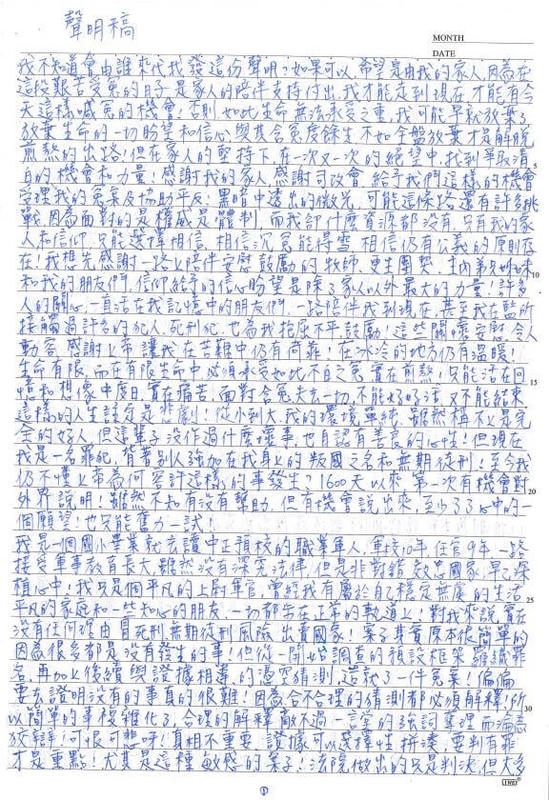 聲明稿
MONTH
DATE
我不知道會由誰來代我發這份聲明？如果可以，希望是由我的家人，因為在
這段艱苦受冤的日子，是家人的陪伴支持付出，我才能走到現在，才能有今
天這樣喊冤的機會，否則如此生命無法承受之重，我可能早就放棄了
放棄生命的一切盼望和信心，與其含冤度餘生，不如全盤放棄才是解脫
煎熬的出路！但在家人的堅持下，在一次又一次的絕望中，找到爭取清
5
白的機會和力量！感謝我的家人，感謝司改會，給予我們這樣的機會
受理我的冤案及協助平反！黑暗中透出的微光，可能這條路還有許多挑
戰，因為面對的是權威是體制，而我卻什麼資源都沒有，只有我的家
人和信仰，只能選擇相信，相信沉冤能得雪，相信仍有公義的原則存
在！我想先感謝一路上陪伴安慰鼓勵的牧師、更生團契、主內弟兄姊妹
10
和我的朋友們，信仰給予的信心盼望是除了家人以外最大的力量！許多
人的關心，一直活在我記憶中的朋友們，一路陪伴我到現在，甚至我在監所
接觸過許多的犯人、死刑犯，也為我抱屈不平鼓勵！這些關懷安慰，令人
動容，感謝上帝讓我在苦難中仍有倚靠！在冰冷的地方仍有溫暖！
生命有限，而在有限生命中必須承受如此不白之冤，實在煎熬！只能活在回
15
憶和想像中度日，實在痛苦，面對含冤失去一切，不能好好活，又不能結束
這樣的人生註定是悲劇！從小到大，我的環境單純，雖然稱不上是完
全的好人，但這輩子沒作過什麼壞事，也自認有善良的個性！但現在
我是一名罪犯，背著別人強加在我身上的叛國之名和無期徒刑！至今我
仍不懂上帝為何容許這樣的事發生？1600天以來，第一次有機會對
20
外界說明！雖然不知有沒有幫助，但有機會說出來，至少了了心中的一
個願望！也只能奮力一試！
我是一個國小畢業就去讀中正預校的職業軍人，軍校10年，任官9年，一路
接受軍事教育長大，雖然沒有深究法律，但是非對錯、效忠國家，早已深
植心中！我只是個平凡的上尉軍官，曾經我有屬於自己穩定無虞的生活
25
平凡的家庭和一些知心的朋友，一切都在正常的軌道上！對我來說，實在
沒有任何理由冒死刑、無期徒刑風險，出賣國家！案子其實原本很簡單的
因為很多都是沒有發生的事！但從一開始調查的預設框架、羅織罪
名，再加上後續與證據相違的憑空猜測，造就了一件冤案！偏偏
要去證明沒有的事真的很難！因為令不合理的猜測都必須解釋，所
30
以簡單的事複雜化了，合理的解釋敵不過一定的強詞奪理而淪為
狡辯！可恨可悲呀！真相不重要，證據可以選擇性拼湊，要判有罪
才是重點！尤其是這種敏感的案子！法院做出的只是判決，但大多
①